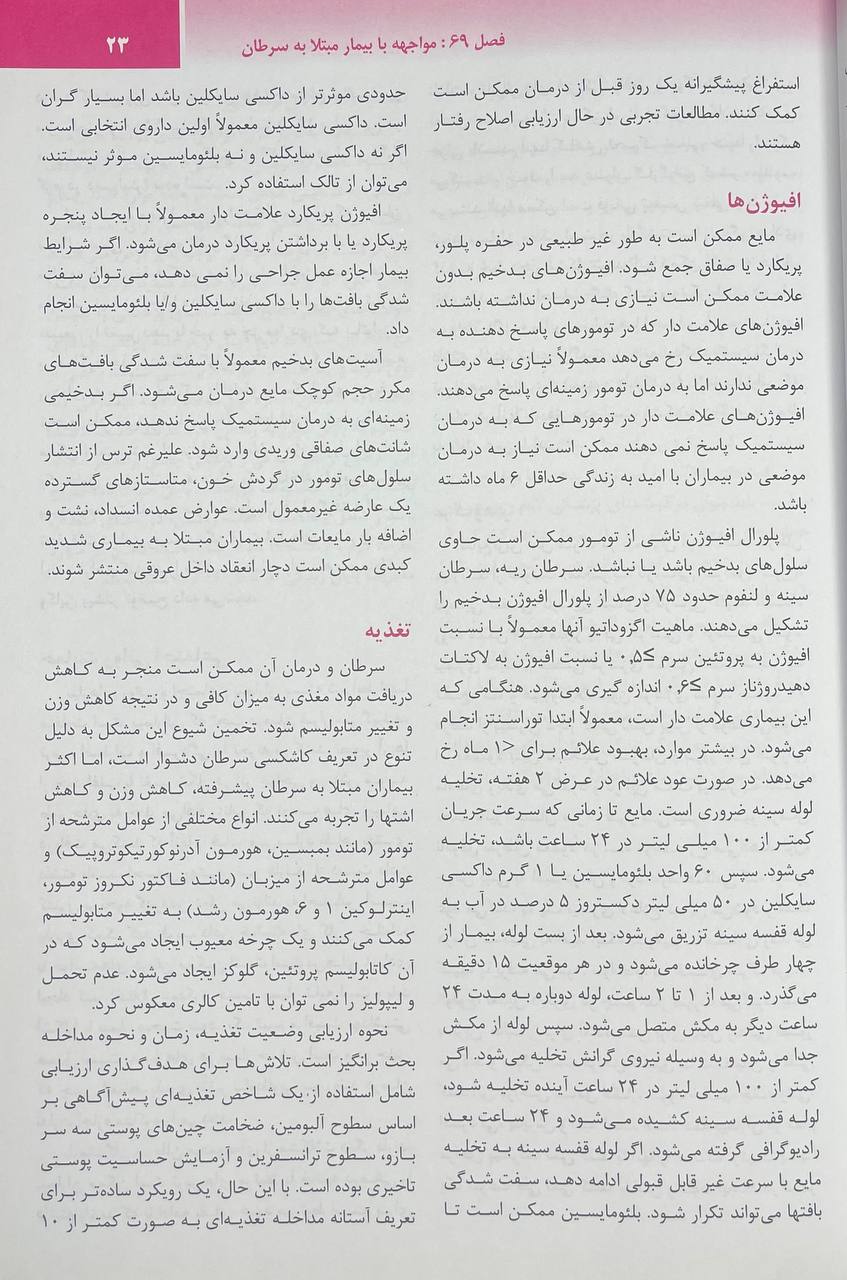 فصل ۶۹: مواجهه با بیمار مبتلا به سرطان
۲۳
استفراغ پیشگیرانه یک روز قبل از درمان ممکن است
کمک کنند. مطالعات تجربی در حال ارزیابی اصلاح رفتار
هستند.
افیوژن‌ها
مایع ممکن است به طور غیر طبیعی در حفره پلور،
پریکارد یا صفاق جمع شود. افیوژن‌های بدخیم بدون
علامت ممکن است نیازی به درمان نداشته باشند.
افیوژن‌های علامت دار که در تومورهای پاسخ دهنده به
درمان سیستمیک رخ می‌دهد معمولاً نیازی به درمان
موضعی ندارند اما به درمان تومور زمینه‌ای پاسخ می‌دهند.
افیوژن‌های علامت دار در تومورهایی که به درمان
سیستمیک پاسخ نمی دهند ممکن است نیاز به درمان
موضعی در بیماران با امید به زندگی حداقل ۶ ماه داشته
باشد.
پلورال افیوژن ناشی از تومور ممکن است حاوی
سلول‌های بدخیم باشد یا نباشد. سرطان ریه، سرطان
سینه و لنفوم حدود ۷۵ درصد از پلورال افیوژن بدخیم را
تشکیل می‌دهند. ماهیت اگزوداتیو آنها معمولاً با نسبت
افیوژن به پروتئین سرم ≥۰,۵ یا نسبت افیوژن به لاکتات
دهیدروژناز سرم ≥۰,۶ اندازه گیری می‌شود. هنگامی که
این بیماری علامت دار است، معمولاً ابتدا توراسنتز انجام
می‌شود. در بیشتر موارد، بهبود علائم برای <۱ ماه رخ
می‌دهد. در صورت عود علائم در عرض ۲ هفته، تخلیه
لوله سینه ضروری است. مایع تا زمانی که سرعت جریان
کمتر از ۱۰۰ میلی لیتر در ۲۴ ساعت باشد، تخلیه
می‌شود. سپس ۶۰ واحد بلئومایسین یا ۱ گرم داکسی
سایکلین در ۵۰ میلی لیتر دکستروز ۵ درصد در آب به
لوله قفسه سینه تزریق می‌شود. بعد از بست لوله، بیمار از
چهار طرف چرخانده می‌شود و در هر موقعیت ۱۵ دقیقه
می‌گذرد. و بعد از ۱ تا ۲ ساعت، لوله دوباره به مدت ۲۴
ساعت دیگر به مکش متصل می‌شود. سپس لوله از مکش
جدا می‌شود و به وسیله نیروی گرانش تخلیه می‌شود. اگر
کمتر از ۱۰۰ میلی لیتر در ۲۴ ساعت آینده تخلیه شود،
لوله قفسه سینه کشیده می‌شود و ۲۴ ساعت بعد
رادیوگرافی گرفته می‌شود. اگر لوله قفسه سینه به تخلیه
مایع با سرعت غیر قابل قبولی ادامه دهد، سفت شدگی
بافتها می‌تواند تکرار شود. بلئومایسین ممکن است تا
حدودی موثرتر از داکسی سایکلین باشد اما بسیار گران
است. داکسی سایکلین معمولاً اولین داروی انتخابی است.
اگر نه داکسی سایکلین و نه بلئومایسین موثر نیستند،
می‌توان از تالک استفاده کرد.
افیوژن پریکارد علامت دار معمولاً با ایجاد پنجره
پریکارد یا با برداشتن پریکارد درمان می‌شود. اگر شرایط
بیمار اجازه عمل جراحی را نمی دهد، می‌توان سفت
شدگی بافت‌ها را با داکسی سایکلین و/یا بلئومایسین انجام
داد.
آسیت‌های بدخیم معمولاً با سفت شدگی بافت‌های
مکرر حجم کوچک مایع درمان می‌شود. اگر بدخیمی
زمینه‌ای به درمان سیستمیک پاسخ ندهد، ممکن است
شانت‌های صفاقی وریدی وارد شود. علیرغم ترس از انتشار
سلول‌های تومور در گردش خون، متاستازهای گسترده
یک عارضه غیرمعمول است. عوارض عمده انسداد، نشت و
اضافه بار مایعات است. بیماران مبتلا به بیماری شدید
کبدی ممکن است دچار انعقاد داخل عروقی منتشر شوند.
تغذیه
سرطان و درمان آن ممکن است منجر به کاهش
دریافت مواد مغذی به میزان کافی و در نتیجه کاهش وزن
و تغییر متابولیسم شود. تخمین شیوع این مشکل به دلیل
تنوع در تعریف کاشکسی سرطان دشوار است، اما اکثر
بیماران مبتلا به سرطان پیشرفته، کاهش وزن و کاهش
اشتها را تجربه می‌کنند. انواع مختلفی از عوامل مترشحه از
تومور (مانند بمبسین، هورمون آدرنوکورتیکوتروپیک) و
عوامل مترشحه از میزبان (مانند فاکتور نکروز تومور،
اینترلوکین ۱ و ۶، هورمون رشد) به تغییر متابولیسم
کمک می‌کنند و یک چرخه معیوب ایجاد می‌شود که در
آن کاتابولیسم پروتئین، گلوکز ایجاد می‌شود. عدم تحمل
و لیپولیز را نمی توان با تامین کالری معکوس کرد.
نحوه ارزیابی وضعیت تغذیه، زمان و نحوه مداخله
بحث برانگیز است. تلاش‌ها برای هدف‌گذاری ارزیابی
شامل استفاده از یک شاخص تغذیه‌ای پیش‌آگاهی بر
اساس سطوح آلبومین، ضخامت چین‌های پوستی سه سر
بازو، سطوح ترانسفرین و آزمایش حساسیت پوستی
تاخیری بوده است. با این حال، یک رویکرد ساده‌تر برای
تعریف آستانه مداخله تغذیه‌ای به صورت کمتر از ۱۰